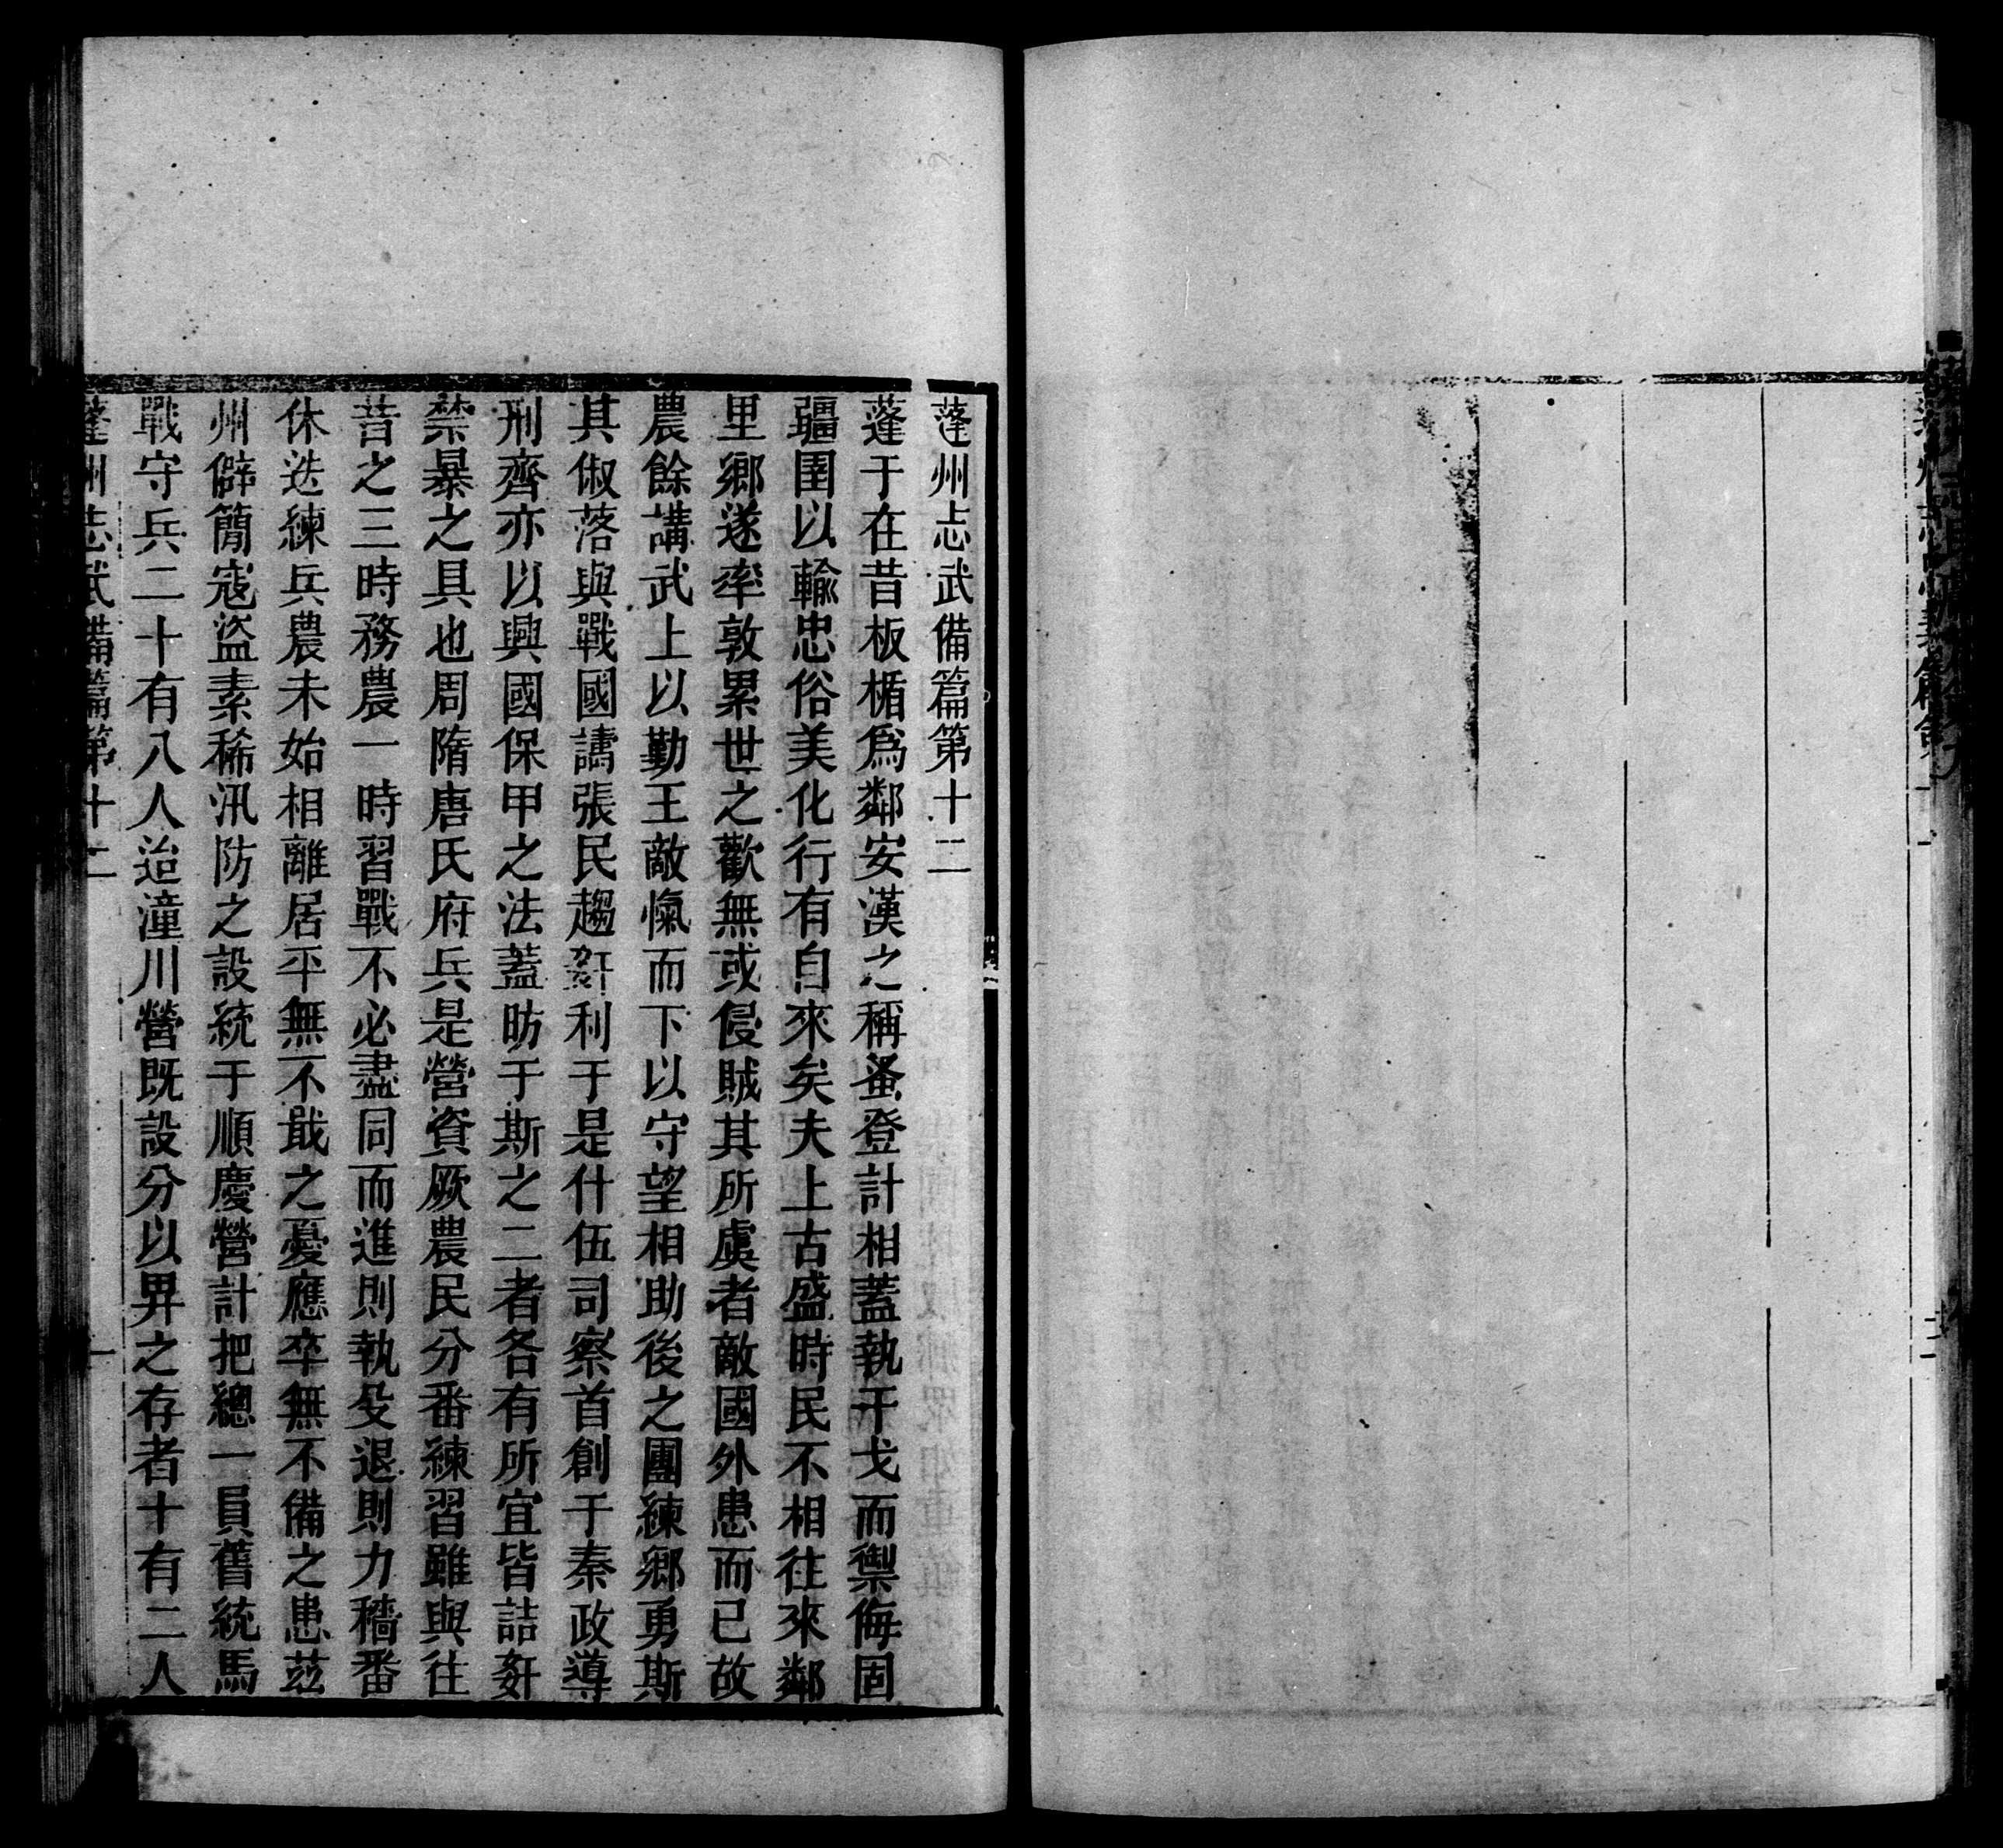 蓬州志武備篇第十二
蓬于在昔板楯爲鄰安漢之稱蚤登計相蓋執干戈而禦侮固
疆圉以輸忠俗美化行有自來矣夫上古盛時民不相往來鄰
里鄉遂率敦累世之歡無或侵賊其所虞者敵國外患而已故
農餘講武上以勤王敵愾而下以守望相助後之團練鄉勇斯
其俶落與戰國譸張民趨姧利于是什伍司察首創于秦政導
刑齊亦以興國保甲之法蓋昉于斯之二者各有所宜皆詰姧
禁暴之具也周隋唐氏府兵是營資厥農民分番練習雖與往
昔之三時務農一時習戰不必盡同而進則執殳退則力穡番
休迭練兵農未始相離居平無不戢之憂應卒無不備之患茲
州僻簡寇盜素稀汛防之設統于順慶營計把總一員舊統馬
戰守兵二十有八人迨潼川營既設分以畀之存者十有二人
蓬州志武備篇第十二 一